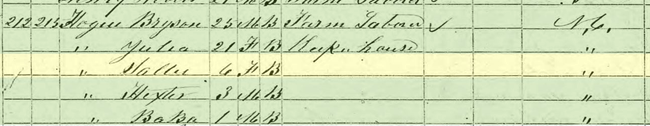 212 213 Hogue Bryson 25 M B Farm Labour ✓ N.C.
" Julia 21 F B Keeps house "
" Hallie 6 F B "
" Hexter 3 M B "
" BaBa 1 M B "